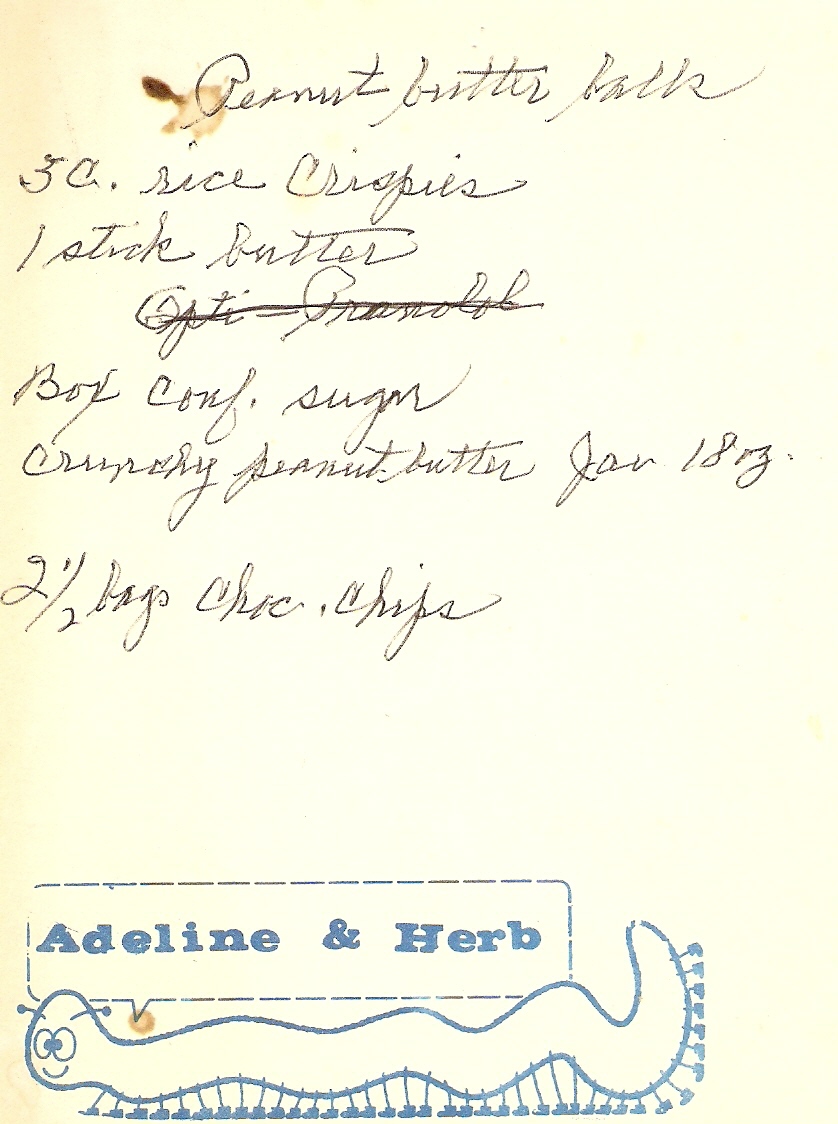 Peanut butter balls
3 C. rice Crispies
1 stick butter
Opti-Pranolol
Box conf. sugar
Crunchy peanut butter Jar 18 oz.
2 1/2 bags Choc. Chips
Adeline & Herb